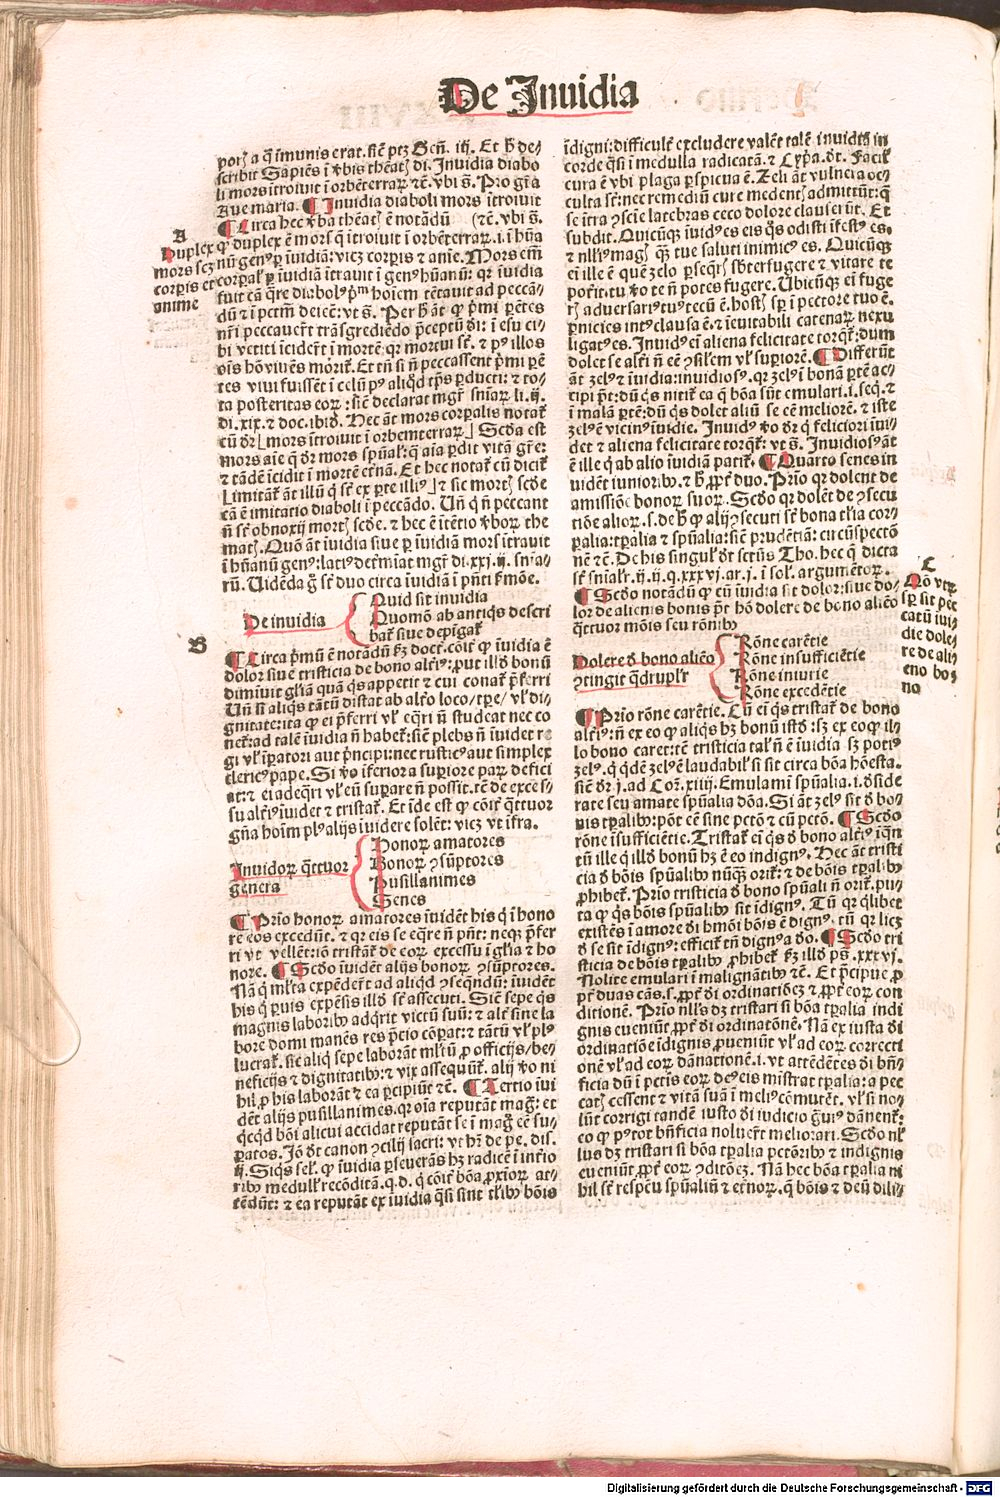 De Inuidia
porꝭ a q̄ īmunis erat. sic̄ ptꝫ Gen̄. iij. Et ħ de⸗
scribit Sapiēs ī v̓bis thēatꝭ di. Inuidia diabo
li mors ītroiuit ī orbēterraꝝ ⁊c̄. vbi s̄. Pro gr̄a
Aue maria. ¶ Inuidia diaboli mors ītroiuit
¶ Circa hec v̓ba thēatꝭ ē notādū (⁊c̄. vbi s̄.
A
Duplex
mors scꝫ
corpis et
anime
ꝙ duplex ē mors q̄ ītroiuit ī orbēterraꝝ .i. ī hūa
nū genꝰ ꝑ īuidiā: vicꝫ corpis ⁊ anīe. Mors em̄
corꝑal̓ ꝑ īuidiā ītrauit ī genꝰ hūanū: qꝛ īuidia
fuit cā q̄re diabolꝰ pͥmū hoīem tētauit ad peccā⸗
dū ⁊ ī pctm̄ deiec̄: vt s̄. Per ħ āt ꝙ pͥmi parētes
nr̄i peccauer̄t trāsgrediēdo p̄ceptū d̓i: ī esu ci⸗
bi vetiti īcider̄t ī mortē: qꝛ mortui sc̄. ⁊ pꝰ illos
oīs hō viuēs moriet̓. Et tn̄ si n̄ peccassent pͥmi parē
tes viui fuissēt ī celū pꝰ aliqd̓ tp̄s ꝑducti: ⁊ to⸗
ta posteritas eoꝝ: sic̄ declarat mgr̄ sniāꝝ li. ij.
di. xix. ⁊ doc. ibid̓. Hec āt mors corꝑalis notat̓
cū dr̄ mors ītroiuit ī orbemterraꝝ. Scd̓a est
mors aīe q̄ dr̄ mors spūal̓: q̄ aīa ꝑdit vitā gr̄e:
⁊ tādē īcidit ī mortē etn̄ā. Et hec notat̓ cū dicit̓
Imitāt̓ āt illū q̄ sē ex ꝑte illiꝰ ⁊ sic mortꝭ scd̓e
cā ē imitatio diaboli ī peccādo. Un̄ q̄ n̄ peccant
n̄ sē obnoxij mortꝭ scd̓e. ⁊ hec ē ītētio v̓boꝝ the
matꝭ. Quō āt īuidia siue ꝑ īuidiā mors ītrauit
ī hūanū genꝰ: latiꝰ determīat mgr̄ di. xxi. ij. sniā⸗
rū. Uidēda ḡ sē duo circa īuidiā ī pn̄ti s̄mōe.
De inuidia
Quid sit inuidia
Quomō ab antiqs descri
bat̓ siue depīgat̓
B
¶ Circa pͥmū ē notādū scd̓m doct. cōit̓ ꝙ īuidia ē
dolor siue tristicia de bono alt̓iꝰ: ꝓut illd̓ bonū
diminuit gl̓iā quā qs appetit ⁊ cui conat̓ p̄ferri
Un̄ si aliqs tātū distat ab alt̓o loco/ tp̄e/ vl̓ di⸗
gnitate: ita ꝙ ei p̄ferri vl̓ eq̄ri n̄ studeat nec co
net̓: ad talē īuidia n̄ habet̓: sic̄ plebs n̄ īuidet re
gi vl̓ īꝑatori aut pͥncipi: nec rusticꝰ aut simplex
clericꝰ pape. Si v̓o īferiora suꝑiore paꝝ defici
at: ⁊ ei adeq̄ri vl̓ eū suꝑare n̄ possit. tē de exces⸗
su alt̓iꝰ īuidet ⁊ tristat̓. Et īde est ꝙ cōit̓ q̄ttuor
gn̄a hoīm plꝰ alijs īuidere solēt: vicꝫ vt īfra.
Inuidoꝝ q̄ttuor
genera
Honoꝝ amatores
Bonoꝝ ꝯsūptores
Pusillanimes
Senes
¶ Prīo honoꝝ amatores īuidēt his q̄ ī hono
re eos excedūt. ⁊ qꝛ eis se eq̄re n̄ pn̄t: neqꝫ p̄fer
ri vt vellēt: iō tristāt̓ de eoꝝ excessu ī gl̓ia ⁊ ho
nore. ¶ Scd̓o īuidēt alijs bonoꝝ ꝯsūptores.
Nā q̄ ml̓ta expēder̄t ad aliqd̓ ꝯseqn̄dū: īuidēt
his q̄ ꝑuis expēsis illd̓ sē assecuti. Sic̄ sepe q̄s
magnis laboribꝰ adqrit victū suū: ⁊ alt̓ sine la
bore domi manēs res p̄cio cōꝑat: ⁊ tātū vl̓ plꝰ
lucrat̓. sic aliq̄ sepe laborāt ml̓tū ꝓ officijs/ be⸗
neficijs ⁊ dignitatibꝰ: ⁊ vix assequūt̓. alij v̓o ni
hil ꝓ his laborāt ⁊ ea ꝑcipiūt ⁊c̄. ¶ Tertio īui
dēt alijs pusillanimes. qꝛ oīa reputāt mag̓: et
q̄cqd̓ bōi alicui accidat reputāt se ī mag̓ eē su⸗
ꝑatos. Iō dr̄t canon ꝯcilij sacri: vt h̄r de pe. dis.
ij. Siqs sel̓. ꝙ īuidia ꝑseuerās hꝫ radicē ī īti⸗o
ribꝰ medull̓ recōditā. q.d. q̄ cōit̓ bōa ꝓxīoꝝ at⸗
tēdūt: ⁊ ea reputāt ex īuidia q̄si sint tl̓ibꝰ bōis
īdigni: difficult̓ excludere valēt talē inuidiā in
corde q̄si ī medulla radicatā. ⁊ Cyp̓a. dt̓. Facil̓
cura ē vbi plaga ꝑspicua ē. Zeli āt vulnera oc⸗
culta sē: nec remediū cure medentꝭ admittūt: q̄
se ītra ꝯscīe latebras ceco dolore clauser̄t. Et
subdit. Quicūqꝫ īuidꝰ es eis q̄s odisti īfestꝰ es.
⁊ nll̓iꝰ magꝭ qꝫ tue saluti inimicꝰ es. Quicūqꝫ
ei ille ē quē zelo ꝑseq̄rꝭ sb̓terfugere ⁊ vitare te
poc̄it. tu v̓o te n̄ potes fugere. Ubicūqꝫ ei fuge
rꝭ aduersariꝰ tuꝰ tecū ē. hostꝭ sꝑ ī pectore tuo ē.
ꝑnicies intꝰ clausa ē. ⁊ īeuitabili catenaꝝ nexu
ligatꝰ es. Inuidꝰ ei aliena felicitate torq̄t̓: dum
dolet se alt̓i n̄ eē ꝯsil̓em vl̓ suꝑiorē. ¶ Differūt
āt zelꝰ ⁊ īuidia: inuidiosꝰ. qꝛ zelꝰ ī bonā ꝑtē ac⸗
cipi pōt: dū q̄s nitit̓ ea q̄ bōa sūt emulari .i. seq̄. ⁊
ī malā ꝑtē: dū q̄s dolet aliū se eē meliorē. ⁊ iste
zelꝰ ē vicinꝰ īuidie. Inuidꝰ v̓o dr̄ q̄ feliciori īui⸗
det ⁊ aliena felicitate torq̄t̓: vt s̄. Inuidiosꝰ āt
ē ille q̄ ab alio īuidiā patit̓. ¶ Quarto senes in
uidēt iunioribꝰ. ⁊ ħ ꝓpt̓ duo. Prīo qꝛ dolent de
amissiōe bonoꝝ suoꝝ. Scd̓o qꝛ dolēt de ꝯsecu
tiōe alioꝝ. s. de ħ ꝙ alij ꝯsecuti sē bona tl̓ia cor⸗
ꝑalia: tꝑalia ⁊ spūalia: sic̄ prudētiā: circūspectō
nē ⁊c̄. De his singul̓ dt̓ sctūs Tho. hec q̄ dicta
sē snīal̓r. ij. ij. q. xxxvj. ar. j. ī sol̓. argumētoꝝ.
C
Nō vtꝫ
sꝑ sit pec
catū īui⸗
die dole⸗
re de ali
eno bo⸗
no
¶ Scd̓o notādū ꝙ cū īuidia sit dolor: siue do⸗
lor de alienis bonis pōt hō dolere de bono aliēo
q̄ttuor mōis seu rōnibꝰ
Dolere d̓ bono aliēo
ꝯtingit q̄druplr̄
Rōne carētie
Rōne insufficiētie
Rōne iniurie
Rōne excedētie
¶ Prīo rōne carētie. Cū ei q̄s tristat̓ de bono
alt̓iꝰ: n̄ ex eo ꝙ aliqs hꝫ bonū istd̓: sꝫ ex eo ꝙ il⸗
lo bono caret: tē tristicia tal̓ n̄ ē īuidia sꝫ potiꝰ
zelꝰ. q̄ qd̓ē zelꝰ ē laudabil̓ si sit circa bōa hōesta.
sic̄ dr̄ j. ad Coȓ. xiiij. Emulami spūalia. i. d̓side
rate seu amate spūalia dōa. Si āt zelꝰ sit d̓ bo⸗
nis tꝑalibꝰ: pōt eē sine pctō ⁊ cū pctō. ¶ Scd̓o
rōne īsufficiētie. Tristat̓ ei q̄s d̓ bono alt̓iꝰ īqn̄
tū ille q̄ illd̓ bonū hꝫ ē eo indignꝰ. Hec āt tristi
cia d̓ bōis spūalibꝰ nūqꝫ orit̓: ⁊ de bōis tꝑalibꝰ
ꝓhibet̓. Prīo tristicia d̓ bono spūali n̄ orit̓. pu⸗
ta ꝙ q̄s bōis spūalibꝰ sit īdignꝰ. Tū qꝛ q̄libet
existēs ī amore d̓i hmōi bōis ē dignꝰ. tū qꝛ licꝫ
d̓ se sit īdignꝰ: efficit̓ tn̄ dignꝰ a d̓o. ¶ Scd̓o tri
sticia de bōis tꝑalibꝰ ꝓhibet̓ scd̓m illd̓ ps̄. xxxvj.
Nolite emulari ī malignātibꝰ ⁊c̄. Et p̄cipue ꝓ
pt̓ duas cās. s. ꝓpt̓ d̓i ordinatiōeꝫ ⁊ ꝓpt̓ eoꝝ con
ditionē. Prīo nll̓s dꝫ tristari si bōa tꝑalia indi
gnis eueniūt ꝓpt̓ d̓i ordinatōnē. Nā ex iusta d̓i
ordinatiōe īdignis ꝓueniūt vl̓ ad eoꝝ correcti
onē vl̓ ad eoꝝ dānationē. i. vt attēdētes d̓i bn̄⸗
ficia dū ī pctīs eoꝝ deꝰ eis mīstrat tꝑalia: a pec
catꝭ cessent ⁊ vitā suā ī meliꝰ cōmutēt. vl̓ si no⸗
lūt corrigi tandē iusto d̓i iudicio g̓uiꝰ dānent̓:
eo ꝙ pꝰ tot bn̄ficia noluer̄t meliorari. Scd̓o nl̓
lus dꝫ tristari si bōa tꝑalia pctōribꝰ ⁊ indignis
eueniūt, ꝓpt̓ eoꝝ ꝯditōeꝫ. Nā hec bōa tꝑalia ni
hil sē respectu spūaliū ⁊ et̓noꝝ. q̄ bōis ⁊ deū dili⸗
Digitalisierung gefördert durch die Deutsche Forschungsgemeinschaft - DFG